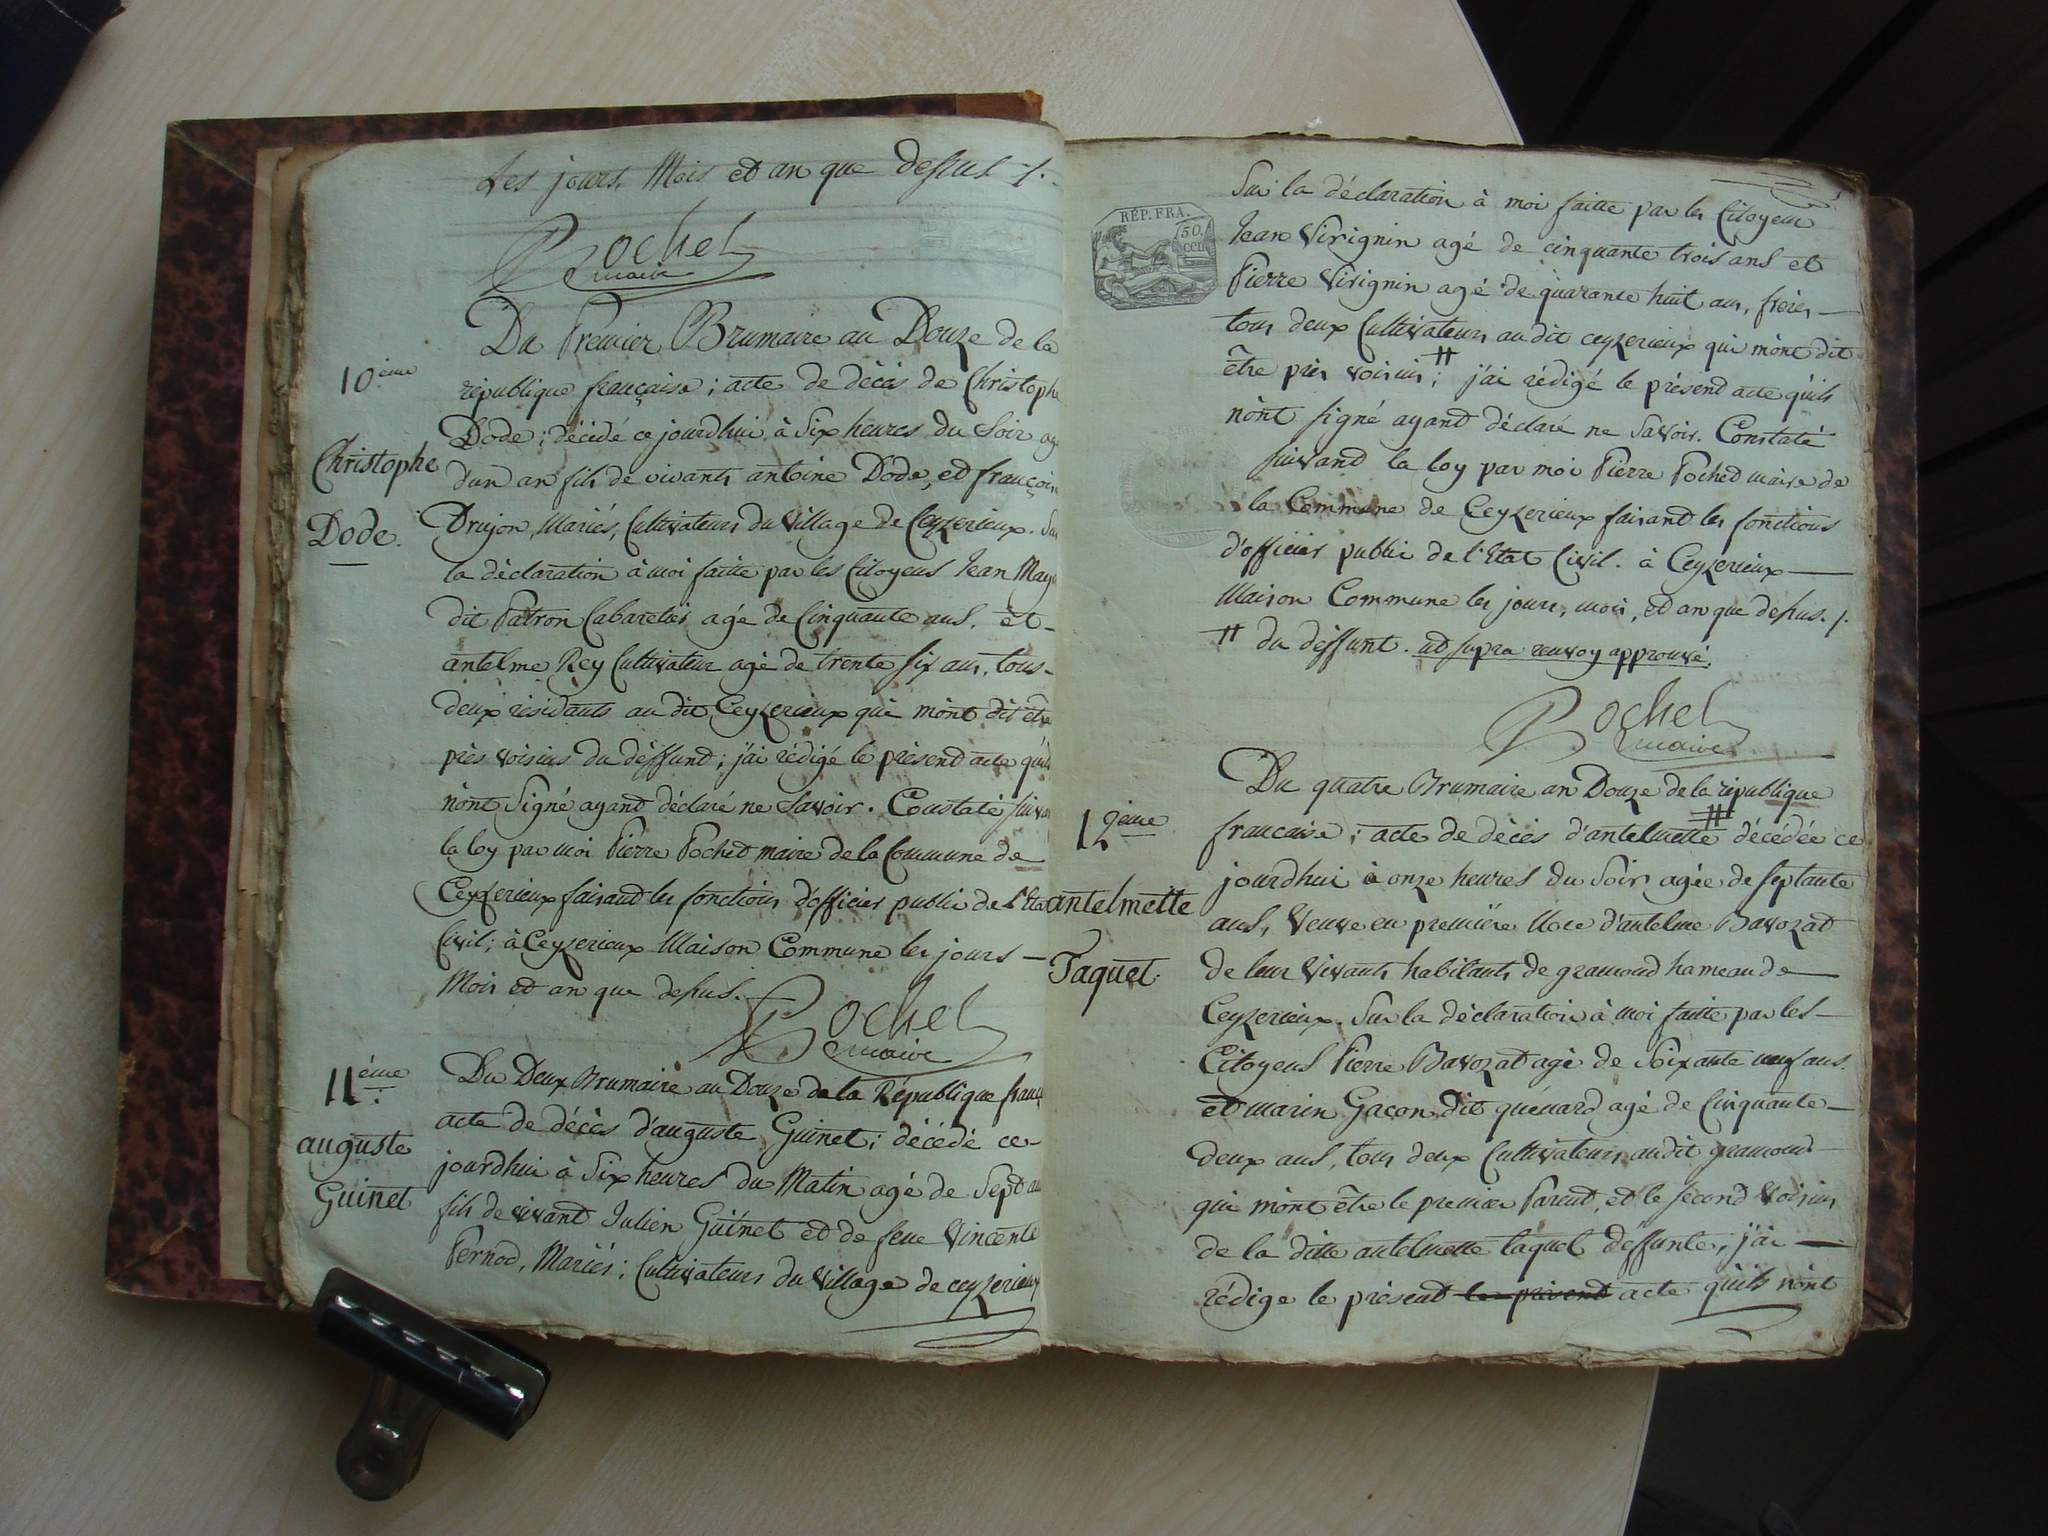 Les jours, Mois et an que dessus /.
Pochet
maire
Du Premier Brumaire an Douze de la
10.ème
république française ; acte de décès de Christophe
Christophe
Dode.
Dode ; décédé ce jourdhui à Six heures du Soir agé
d'un an fils de vivants antoine Dode, et françoise
Drujon, Mariés, Cultivateurs du Village de Ceyzerieux. Sur
la déclaration à moi faitte par les Citoyens Jean May
dit Patron Cabaretier agé de Cinquante ans, et
antelme Rey Cultivateur agé de trente six ans, tous
deux résidants au dit Ceyzerieux qui m'ont dit être
près voisins du déffunt ; j'ai rédigé le présent acte qu'ils
n'ont Signé ayant déclaré ne Savoir. Constaté suivant
la loy par moi Pierre Pochet maire de la Commune de
Ceyzerieux faisant les fonctions d'officier public de l'Etat
Civil ; à Ceyzerieux Maison Commune les jours
Mois et an que dessus.
Pochet
maire
11ème
auguste
Guinet
Du Deux Brumaire an Douze de la République franç
acte de décès d'auguste Guinet ; décédé ce
jourdhui à Six heures du Matin agé de Sept an
fils de vivant Julien Guinet et de feue Vincente
Pernod, Mariés ; Cultivateurs du Village de ceyzerieux
RÉP. FRA.
50.
CEN
Sur la déclaration à moi faitte par les Citoyens
Jean Virignin agé de cinquante trois ans et
Pierre Virignin agé de quarante huit ans, frères
tous deux Cultivateurs au dit ceyzerieux qui m'ont dit
être près voisins # ; j'ai rédigé le présent acte qu'ils
n'ont signé ayant déclaré ne Savoir. Constaté
suivant la loy par moi Pierre Pochet maire de
la Commune de Ceyzerieux faisant les fonctions
d'officier public de l'Etat Civil. à Ceyzerieux
Maison Commune les jours, mois, et an que dessus. /.
# du déffunt. ut supra renvoy approuvé.
Pochet
maire
12ème
antelmette
Taquet.
Du quatre Brumaire an Douze de la république
francaise ; acte de décès d'antelmette # décédée ce
jourdhui à onze heures du Soir agée de septante
ans, Veuve en première Noce d'antelme Bavozat
de leur Vivants habitants de gramond hameau de
Ceyzerieux. Sur la déclaration à moi faitte par les
Citoyens Pierre Bavozat agé de Soixante neuf ans.
et marin Gacon dit quénard agé de Cinquante
deux ans, tous deux Cultivateurs au dit gramond
qui m'ont être le premier Parent, et le second Voisin
de la ditte antelmette taquet déffunte ; j'ai
rédigé le présent le présent acte qu'ils n'ont